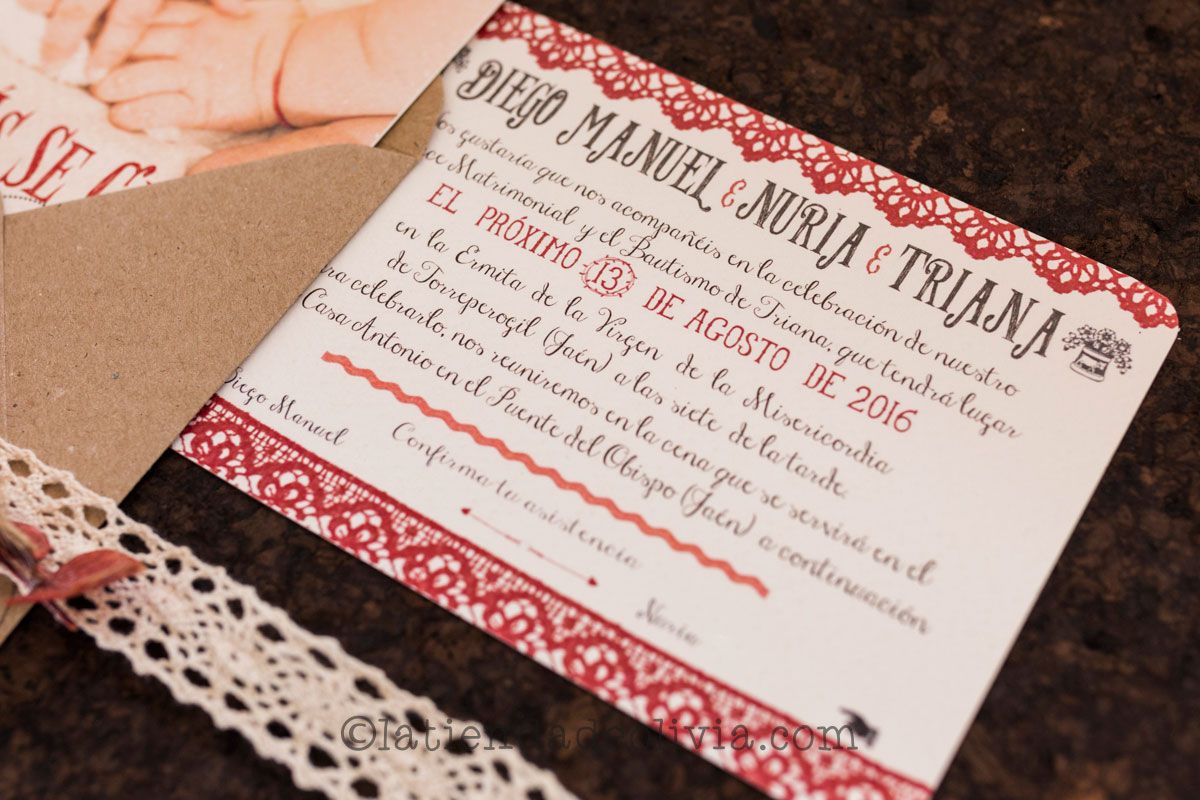 ÁS SE C
DIEGO MANUEL & NURIA & TRIANA
os gustaría que nos acompañéis en la celebración de nuestro
ce Matrimonial y el Bautismo de Triana, que tendrá lugar
EL PRÓXIMO 13 DE AGOSTO DE 2016
en la Ermita de la Virgen de la Misericordia
de Torreperogil (Jaén) a las siete de la tarde.
ra celebrarlo, nos reuniremos en la cena que se servirá en el
Casa Antonio en el Puente del Obispo (Jaén) a continuación
Confirma tu asistencia
Diego Manuel
Nuria
©latiendadeolivia.com